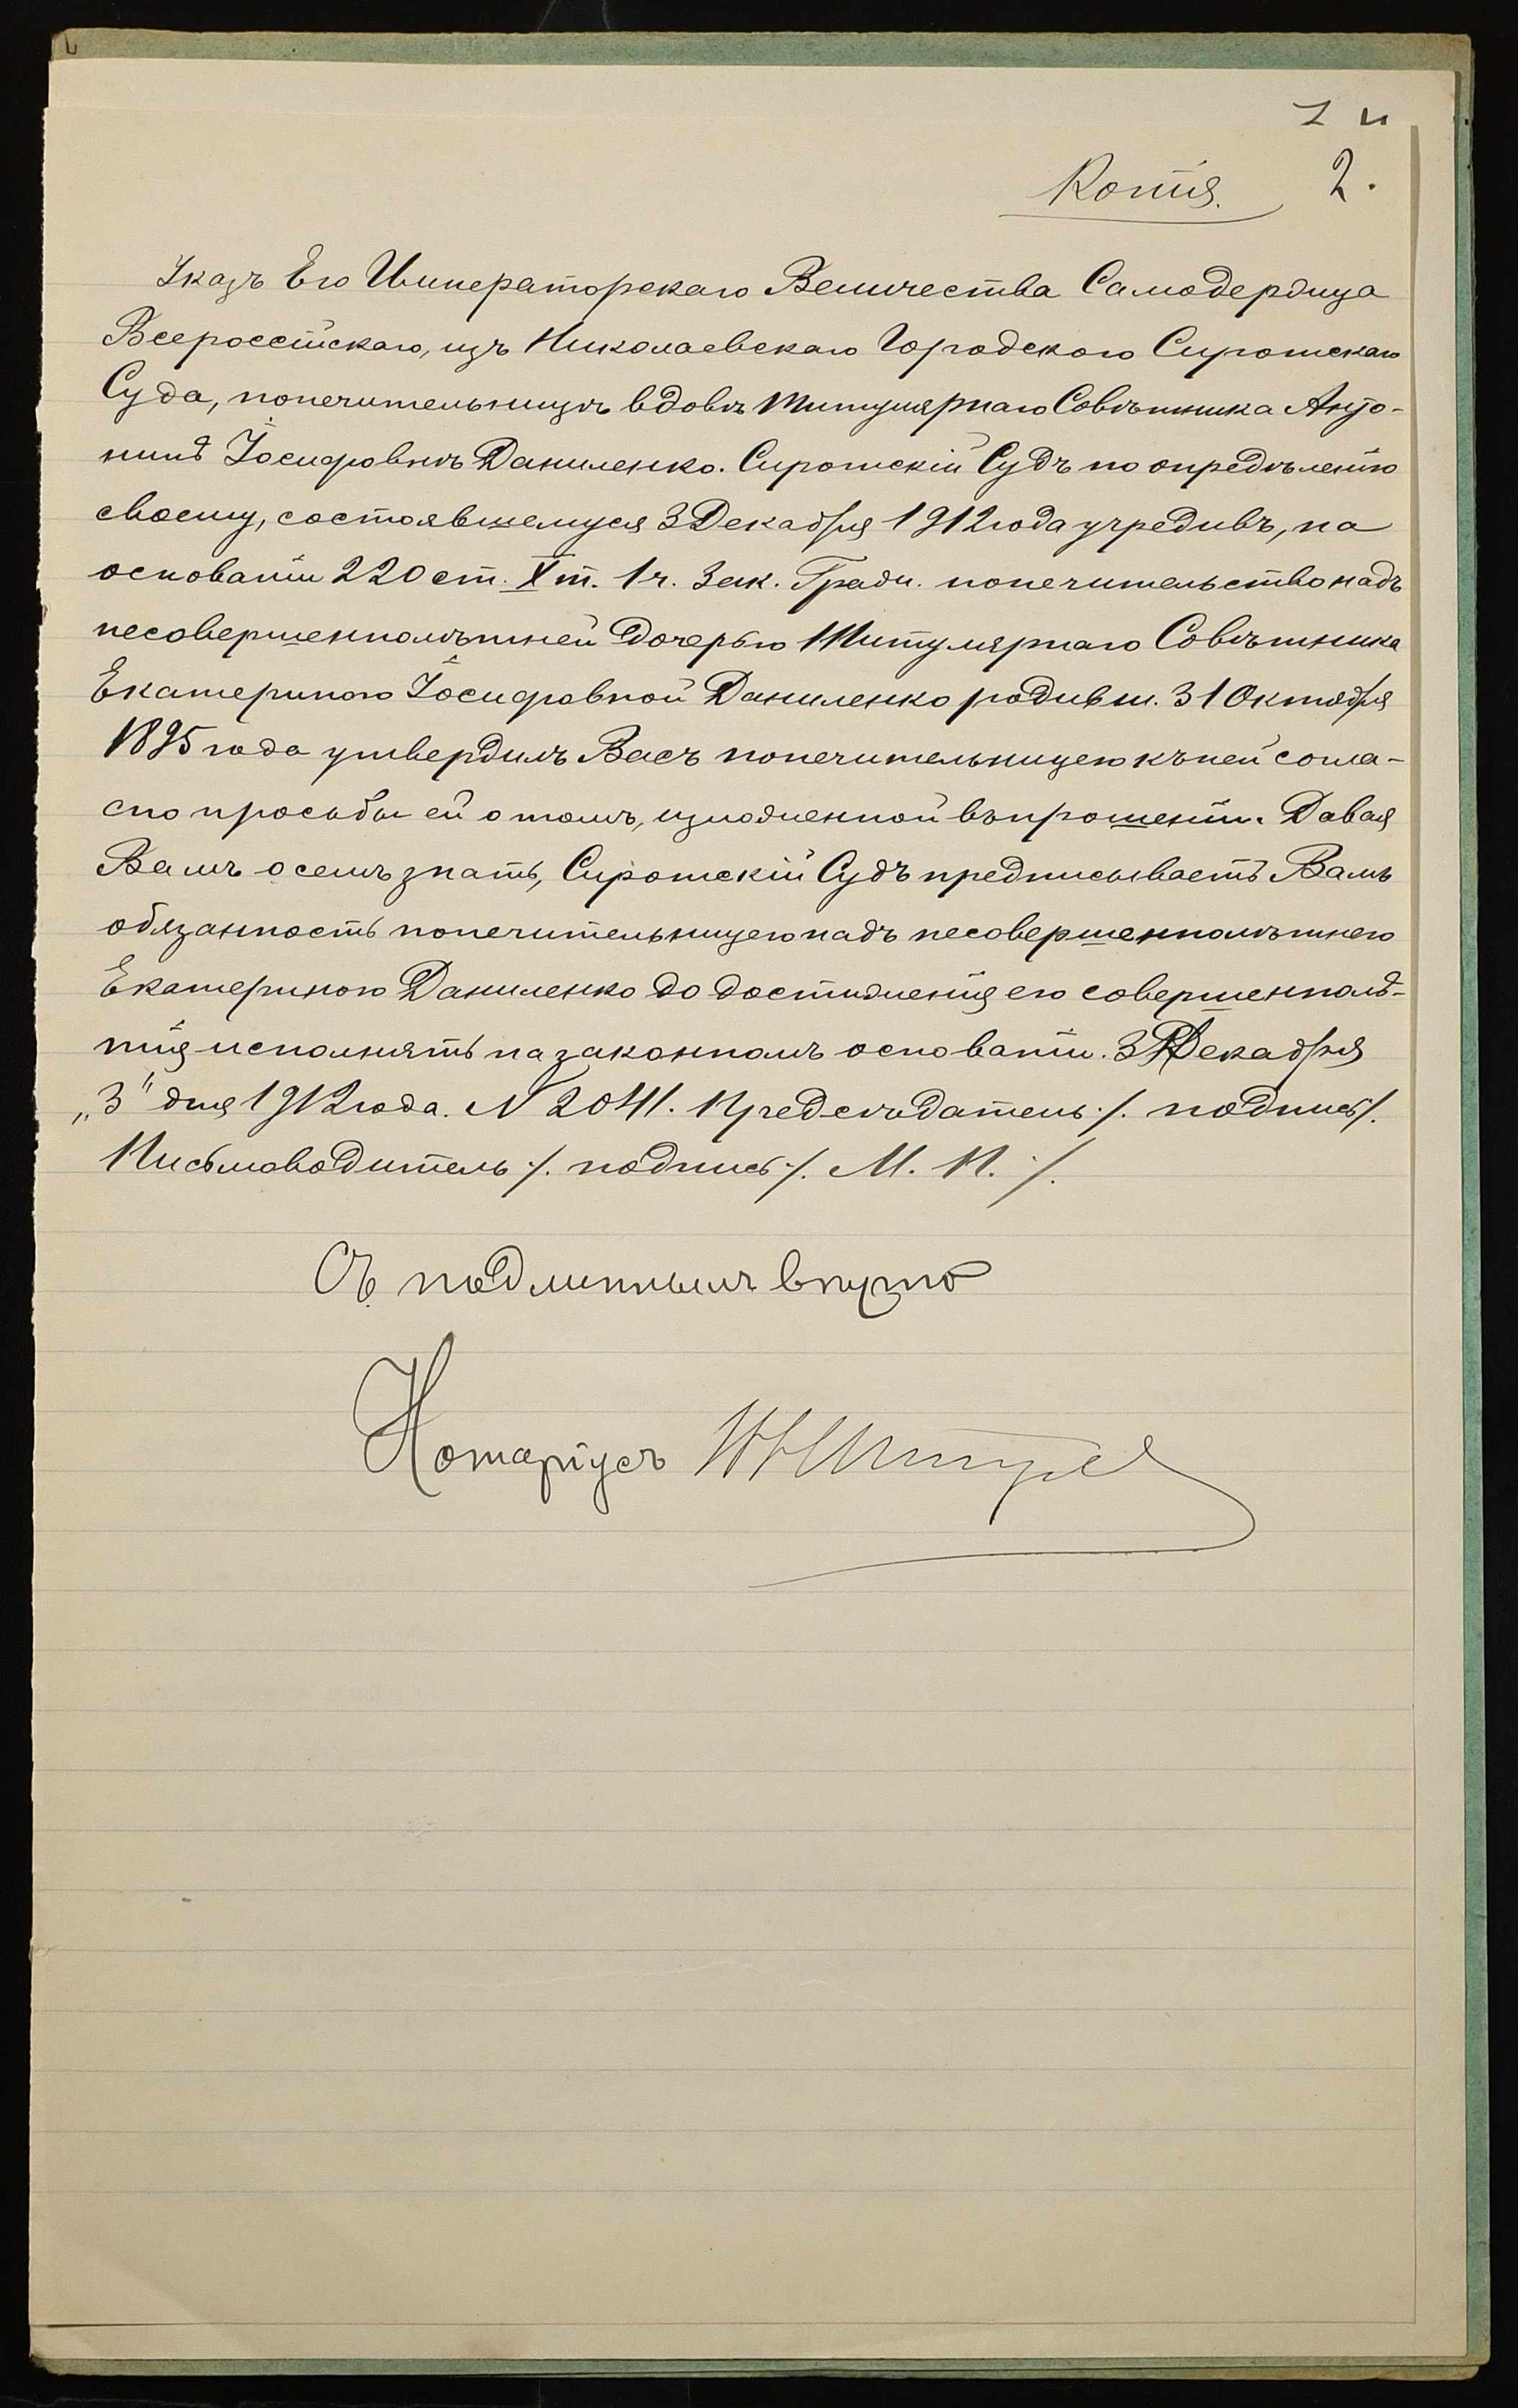 Копія. 2.
Указъ Его Императорскаго Величества Самодержца
Всероссійскаго, изъ Николаевскаго Городского Сиротскаго
Суда, попечительницѣ вдовѣ Титулярнаго Совѣтника Анто-
нинѣ Іосифовнѣ Даниленко. Сиротскій Судъ по опредѣленію
своему, состоявшемуся 3 Декабря 1912 года учредивъ, на
основаніи 220 ст. X т. 1 ч. Зак. Гражд. попечительство надъ
несовершеннолѣтней дочерью Титулярнаго Совѣтника
Екатериною Іосифовной Даниленко родивш. 31 Октября
1895 года утвердилъ Васъ попечительницею къ ней согла-
сно просьбы ей о томъ, изложенной въ прошеніи. Давая
Вамъ о семъ знать, Сиротскій Судъ предписываетъ Вамъ
обязанность попечительницею надъ несовершеннолѣтнею
Екатериною Даниленко до достиженія ею совершеннолѣ-
тія исполнять на законномъ основаніи. Декабря
„3" дня 1912 года. N 2041. Предсѣдатель /. подпись /.
Письмоводитель /. подпись /. М. П. /.
Съ подлиннымъ вѣрно
Нотаріусъ